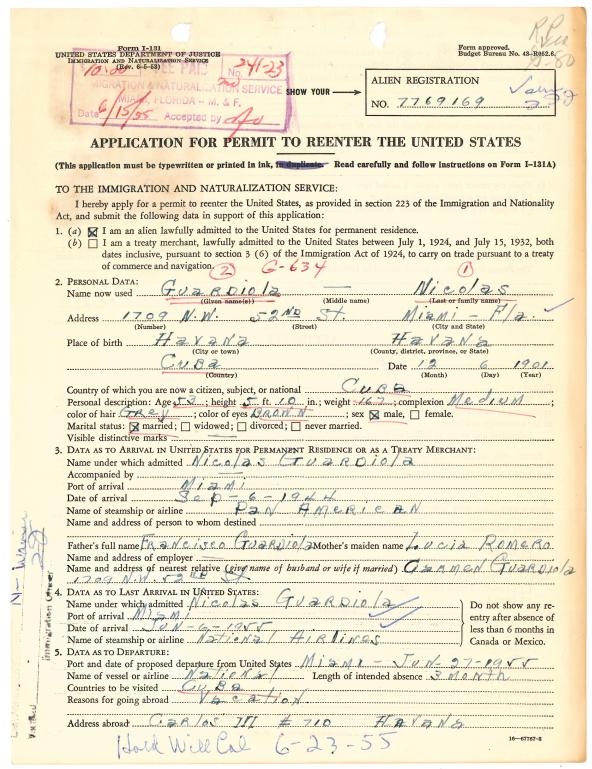 Form I-131
UNITED STATES DEPARTMENT OF JUSTICE
IMMIGRATION AND NATURALIZATION SERVICE
(Rev. 6-5-53)
Form approved.
Budget Bureau No. 43-R052.6.
No. 241-23
10.00
IMMIGRATION & NATURALIZATION SERVICE
MIAMI, FLORIDA - M. & F.
Date 6/15/55 Accepted by
SHOW YOUR
ALIEN REGISTRATION
NO. 7769169
APPLICATION FOR PERMIT TO REENTER THE UNITED STATES
(This application must be typewritten or printed in ink, in duplicate. Read carefully and follow instructions on Form I-131A)
TO THE IMMIGRATION AND NATURALIZATION SERVICE:
I hereby apply for a permit to reenter the United States, as provided in section 223 of the Immigration and Nationality
Act, and submit the following data in support of this application:
1. (a) I am an alien lawfully admitted to the United States for permanent residence.
(b) I am a treaty merchant, lawfully admitted to the United States between July 1, 1924, and July 15, 1932, both
dates inclusive, pursuant to section 3 (6) of the Immigration Act of 1924, to carry on trade pursuant to a treaty
of commerce and navigation.
(2) G-634 (1)
2. PERSONAL DATA:
Name now used Guardiola — Nicolas
(Given name(s)) (Middle name) (Last or family name)
Address 1709 N.W. 52ND St. Miami - Fla.
(Number) (Street) (City and State)
Place of birth Havana Havana
(City or town) (County, district, province, or State)
Cuba Date 12 6 1901
(Country) (Month) (Day) (Year)
Country of which you are now a citizen, subject, or national Cuba
Personal description: Age 53; height 5 ft. 10 in.; weight 167; complexion Medium;
color of hair Grey; color of eyes Brown; sex male, female.
Marital status: married; widowed; divorced; never married.
Visible distinctive marks —
3. DATA AS TO ARRIVAL IN UNITED STATES FOR PERMANENT RESIDENCE OR AS A TREATY MERCHANT:
Name under which admitted Nicolas Guardiola
Accompanied by —
Port of arrival Miami
Date of arrival Sep-6-1944
Name of steamship or airline Pan American
Name and address of person to whom destined
Father's full name Francisco Guardiola Mother's maiden name Lucia Romero
Name and address of employer
Name and address of nearest relative (give name of husband or wife if married) Carmen Guardiola
1709 N.W. 52nd St
4. DATA AS TO LAST ARRIVAL IN UNITED STATES:
Name under which admitted Nicolas Guardiola
Port of arrival Miami
Date of arrival Jun-6-1955
Name of steamship or airline National Airlines
Do not show any re-
entry after absence of
less than 6 months in
Canada or Mexico.
5. DATA AS TO DEPARTURE:
Port and date of proposed departure from United States Miami - Jun-27-1955
Name of vessel or airline National Length of intended absence 3 month
Countries to be visited Cuba
Reasons for going abroad Vacation
Address abroad Carlos III # 710 Havana
16—67767-2
Hold Will Call 6-23-55
Immigration Officer